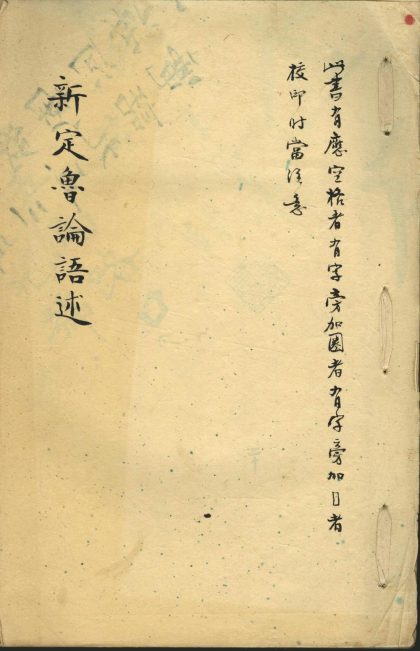 此書有應空格者有字旁加圈者有字旁加囗者
校印时當注意
新定魯論語述